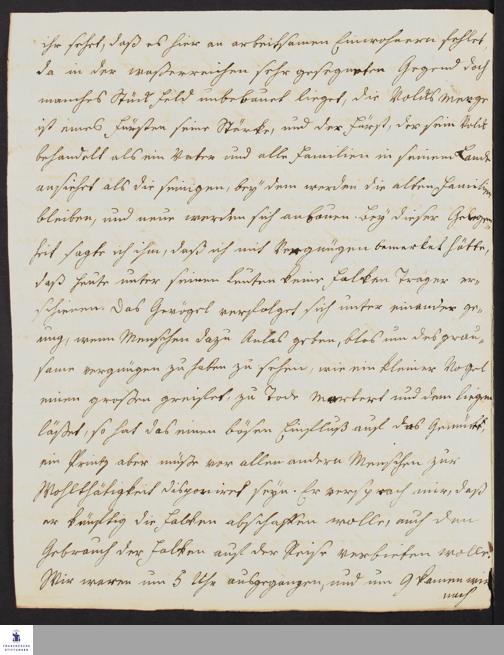 ihr sehet, daß es hier an arbeitsamen Einwohnern fehlet,
da in der waßerreichen sehr gesegneten Gegend doch
manches Stück feld unbebauet lieget, die Volks Menge
ist eines Fürsten seine Stärke, und der Fürst, der sein Volk
behandelt als ein Vater und alle Familien in seinem Lande
ansiehet als die seinigen, bey dem werden die alten Familien
bleiben, und neue werden sich anbauen. Bey dieser Gelegen-
heit sagte ich ihm, daß ich mit Vergnügen bemerket hätte,
daß heute unter seinen Leuten keine Falken Träger er-
schienen. Das Gevögel verfolget sich unter einander ge-
nug, wenn Menschen dazu Anlas geben, blos um des grau-
same vergnügen zu haben zu sehen, wie ein kleiner Vogel
einen großen greifet, zu Tode martert und dann liegen
läßet, so hat das einen bösen Einfluß auf das Gemüth,
ein Printz aber müße vor allen andern Menschen zur
Wohlthätigkeit disponiret seyn. Er versprach mir, daß
er künftig die Falken abschaffen wolle, auch den
Gebrauch der Falken auf der Reise verbieten wolle.
Wir waren um 5 Uhr ausgegangen, und um 9 kamen wir
nach
FRANCKESCHE
STIFTUNGEN